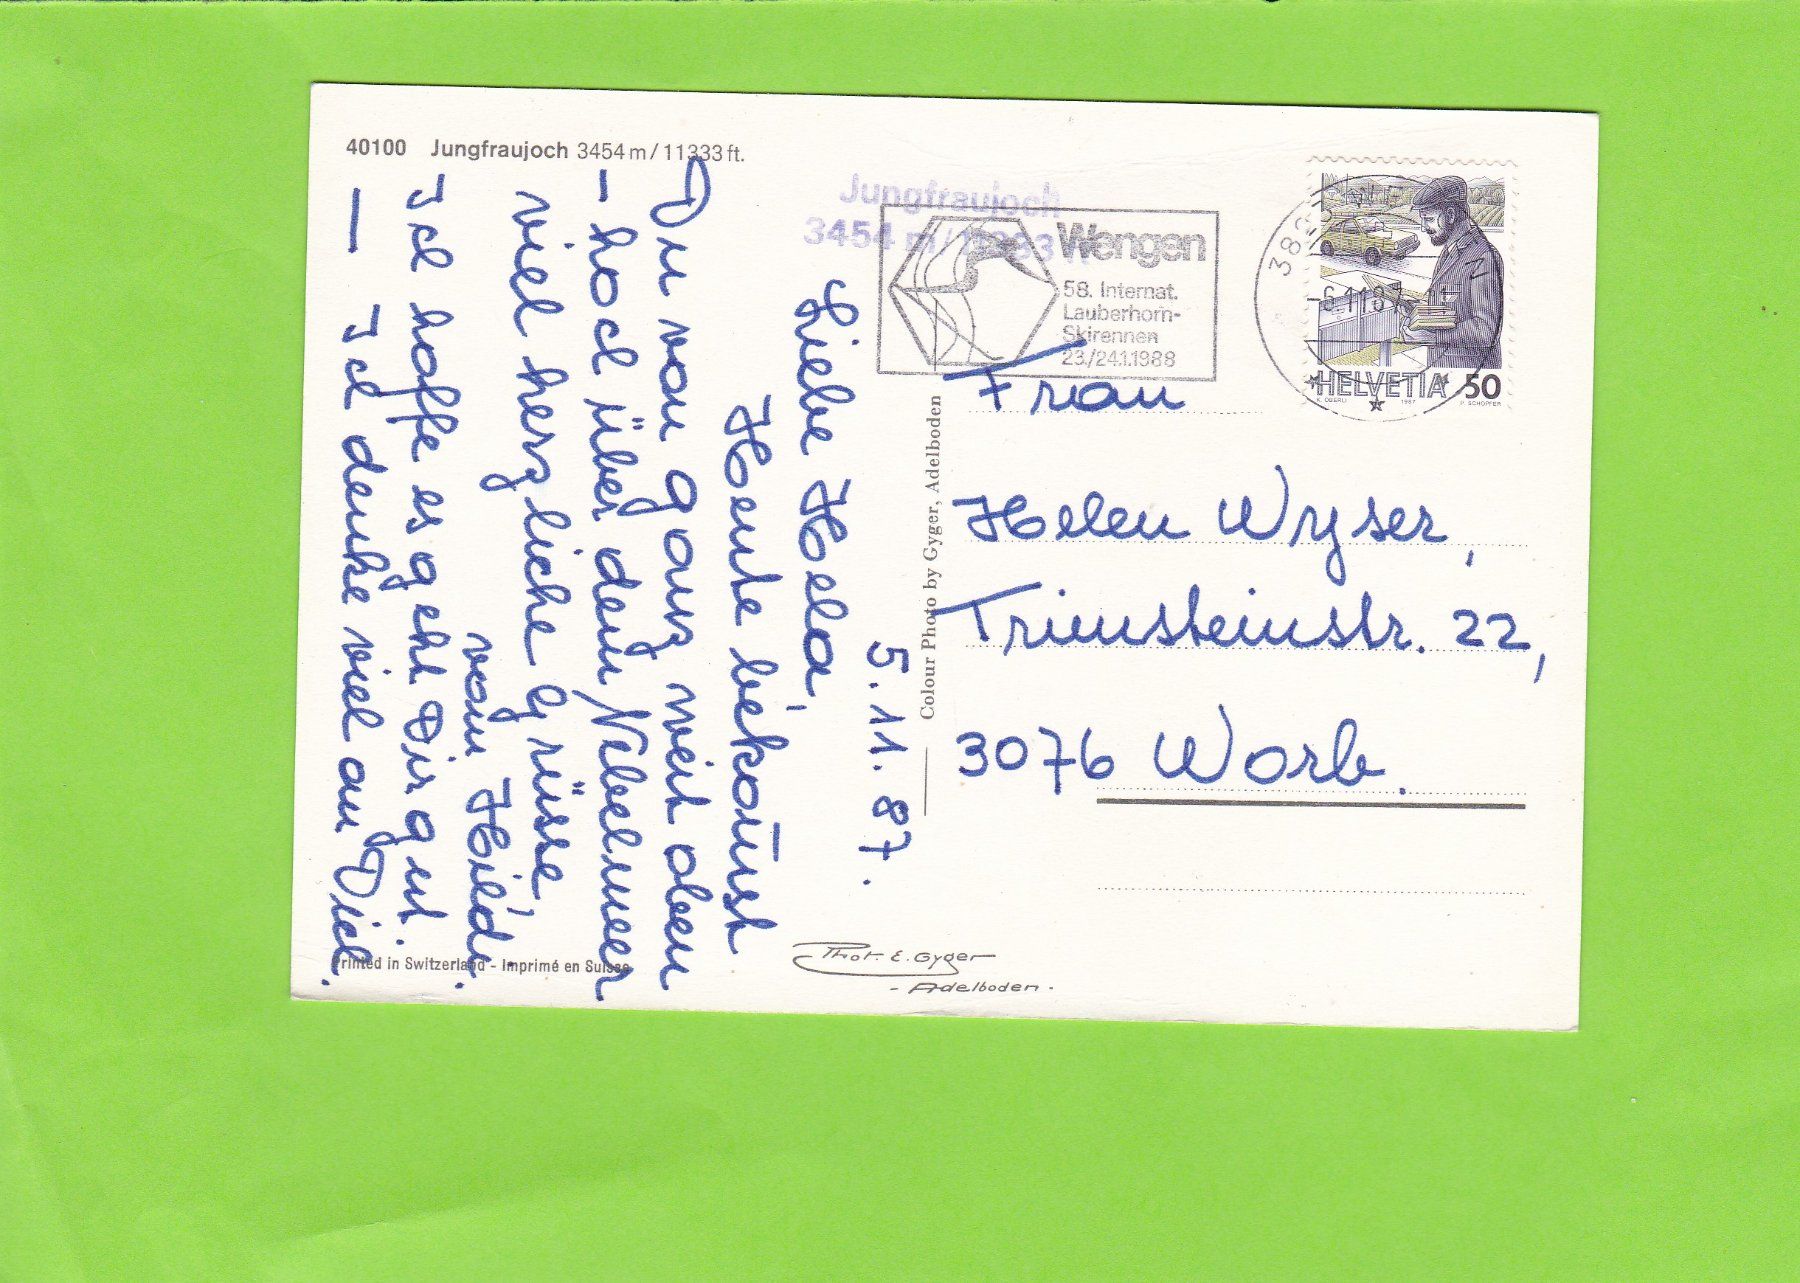 40100 Jungfraujoch 3454 m / 11333 ft.
Jungfraujoch
3454 m / 11333
Wengen
58. Internat.
Lauberhorn-
Skirennen
23./24.1.1988
HELVETIA 50
K. OBERLI 1987 P. SCHOPFER
5. 11. 87.
Liebe Hela,
Heute bekom̄st
Du von ganz weit oben
– hoch über dem Nebelmeer
viel herzliche Grüsse,
vom Hildi.
Ich hoffe es geht Dir gut.
– Ich denke viel an Dich.
Colour Photo by Gyger, Adelboden
Frau
Helen Wyser,
Trimsteinstr. 22,
3076 Worb.
Printed in Switzerland - Imprimé en Suisse
Phot. E. Gyger
- Adelboden -